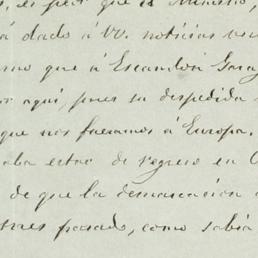 es peor que el Ministro,
á dado á VV. noticias
mo que á Escandón
aquí, pues su despedida
que nos fuéramos á Europa.
aba estar de regreso en
de que la demarcacion
pasado, como sabía